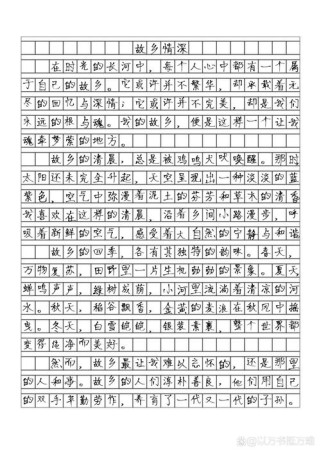 故乡情深
在时光的长河中，每个人心中都有一个属
于自己的故乡。它或许并不繁华，却承载着无
尽的回忆与深情；它或许并不完美，却是我们
永远的根与魂。我的故乡，便是这样一个让我
魂牵梦萦的地方。
故乡的清晨，总是被鸡鸣犬吠唤醒。那时
太阳还未完全升起，天空呈现出一种淡淡的蓝
紫色，空气中弥漫着泥土的芬芳和草木的清香
我喜欢在这样的清晨，沿着乡间小路漫步，呼
吸着新鲜的空气，感受着大自然的宁静与和谐
故乡的四季，各有其独特的韵味。春天，
万物复苏，田野里一片生机勃勃的景象。夏天
蝉鸣声声，绿树成荫，小河里流淌着清凉的河
水。秋天，稻谷飘香，金黄的麦浪在秋风中摇
曳。冬天，白雪皑皑，银装素裹，整个世界都
变得纯净而美好。
然而，故乡最让我难以忘怀的，还是那里
的人和事。故乡的人们淳朴善良，他们用自己
的双手辛勤劳作，养育了一代又一代的子孙。